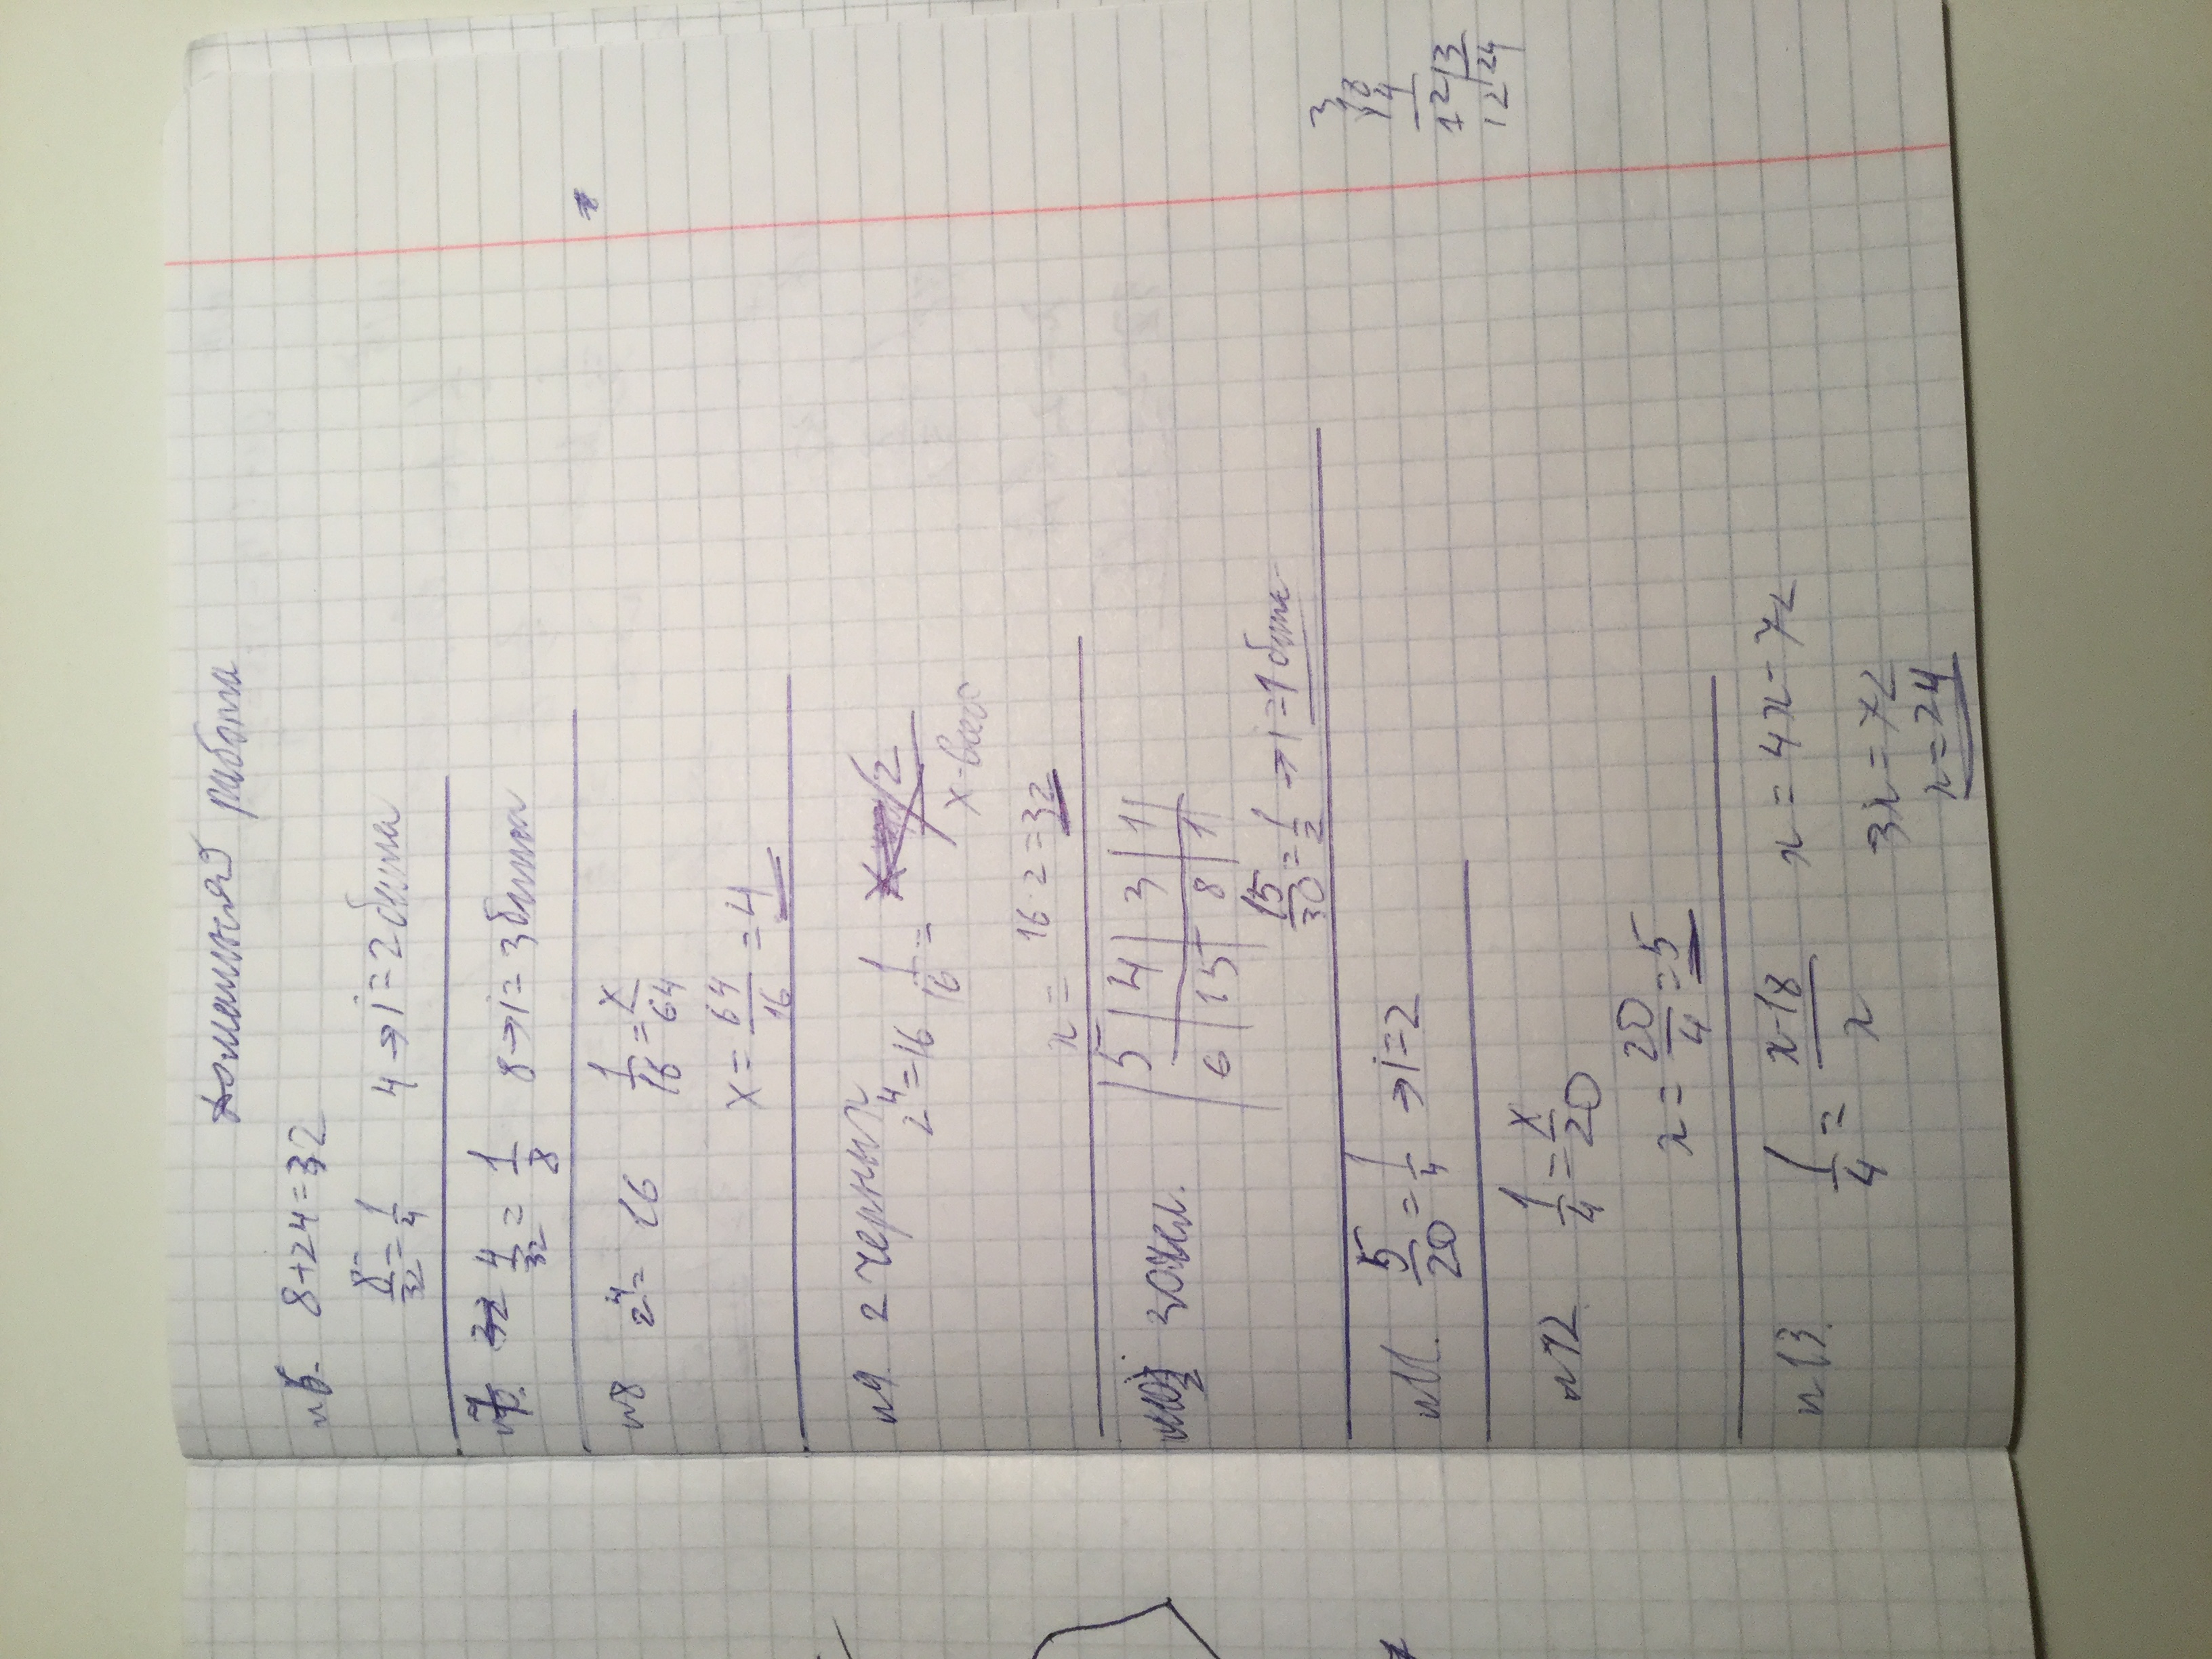 Домашняя работа
№6. 8+24=32
8/32 = 1/4 4 → i = 2 бита
№7. 4/32 = 1/8 8 → i = 3 бита
№8 2^4 = 16 1/16 = x/64
x = 64/16 = 4
№9. 2 черных
2^4 = 16 1/16 = 2
x - всего
x = 16·2 = 32
№10 30 чел. | 5 | 4 | 3 | 1 |
| 6 | 15 | 8 | 1 |
15/30 = 1/2 → i = 1 бит
№11. 5/20 = 1/4 → i = 2
№12. 1/4 = x/20
x = 20/4 = 5
№13. 1/4 = x-18/x x = 4x - 72
3x = 72
x = 24
3
18
4
12 | 3
12 | 24